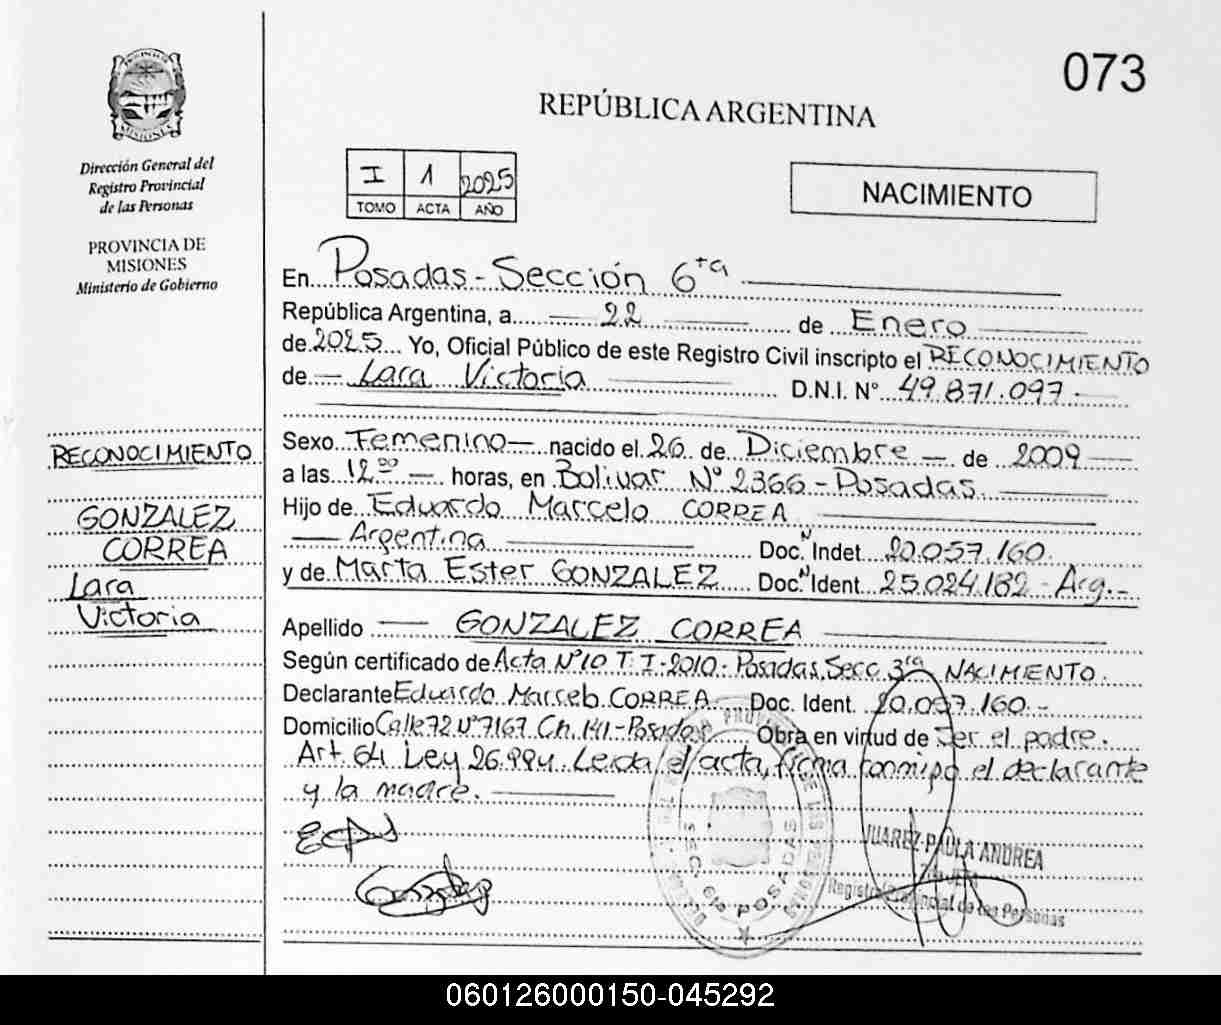 073
REPÚBLICA ARGENTINA
PROVINCIA
MISIONES
Dirección General del
Registro Provincial
de las Personas
PROVINCIA DE
MISIONES
Ministerio de Gobierno
I 1 2025
TOMO ACTA AÑO
NACIMIENTO
En Posadas - Sección 6ta
República Argentina, a 22 de Enero
de 2025 Yo, Oficial Público de este Registro Civil inscripto el RECONOCIMIENTO
de Lara Victoria D.N.I. Nº 49.871.097.-
Sexo Femenino nacido el 26 de Diciembre de 2009
a las 12 00 horas, en Bolivar Nº 2366 - Posadas
Hijo de Eduardo Marcelo CORREA
Argentina Doc. N Indet 20.057.160.
y de Marta Ester GONZALEZ Doc. N Ident 25.024.182 - Arg.-
Apellido GONZALEZ CORREA
Según certificado de Acta Nº10 T. I-2010- Posadas, Secc. 3ra NACIMIENTO.
Declarante Eduardo Marcelo CORREA Doc. Ident. 20.057.160.-
Domicilio Calle 72 Nº7167 Ch. 141-Posadas Obra en virtud de Ser el padre.
Art. 64 Ley 26.994. Leida el acta, firma conmigo el declarante
y la madre.
RECONOCIMIENTO
GONZALEZ
CORREA
Lara
Victoria
SEC. 6ta POSADAS
JUAREZ PAULA ANDREA
Registro Provincial de las Personas
060126000150-045292